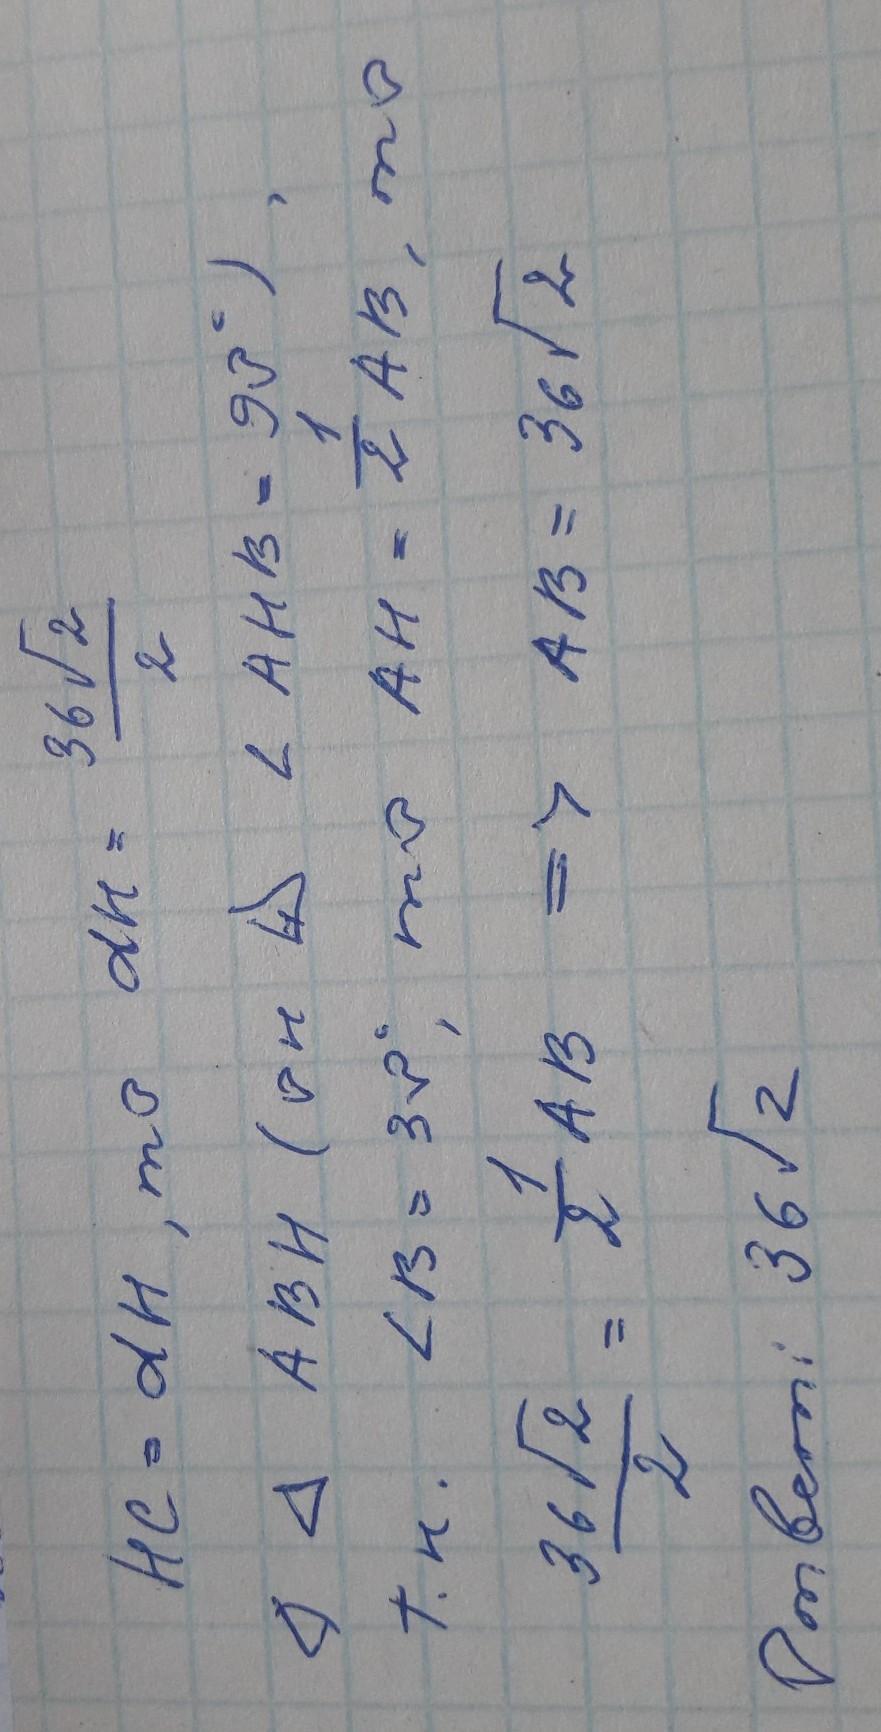 HC = AH, то AH = 36√2/2
◁ △ ABH (он ⊿ ∠AHB = 90°),
т.к. ∠B = 30°, то AH = 1/2 AB, то
36√2/2 = 1/2 AB => AB = 36√2
Ответ: 36√2